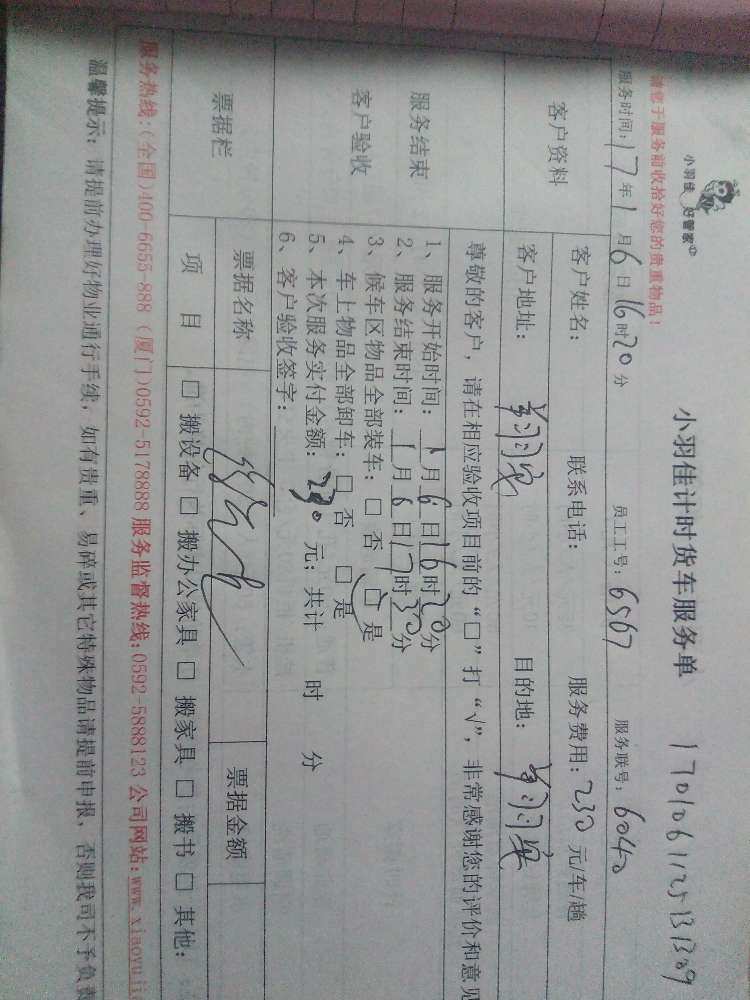 请您于服务前收拾好您的贵重物品!
小羽佳 好管家
小羽佳计时货车服务单 1701061125131309
服务时间:17年1月6日16时20分 员工工号:6567 服务联号:6040
客户资料
客户姓名: 联系电话: 服务费用:230元/车/趟
客户地址: 目的地:
服务结束
客户验收
尊敬的客户,请在相应验收项目前的“□”打“√”,非常感谢您的评价和意见
1、服务开始时间:1月6日16时20分
2、服务结束时间:1月6日17时50分
3、候车区物品全部装车:□否 □是
4、车上物品全部卸车:□否 □是
5、本次服务实付金额:230元;共计 时 分
6、客户验收签字:
票据栏
票据名称 票据金额
项 目 □搬设备 □搬办公家具 □搬家具 □搬书 □其他:
服务热线:(全国)400-6655-888 (厦门)0592-5178888 服务监督热线:0592-5888123 公司网站:www.xiaoyuji
温馨提示:请提前办理好物业通行手续,如有贵重、易碎或其它特殊物品请提前申报,否则我司不予负责